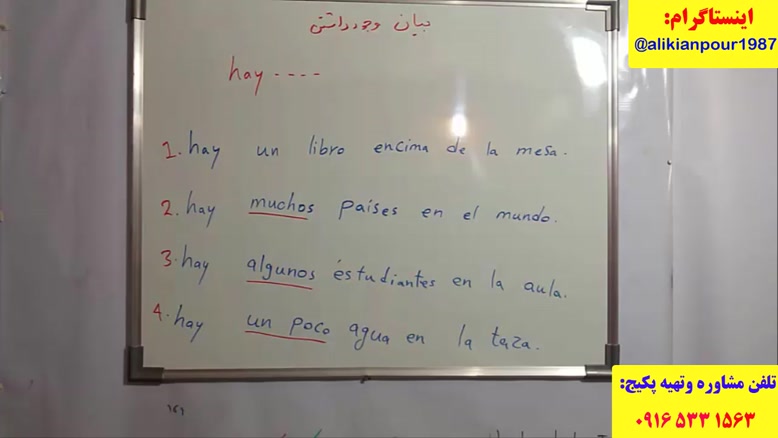 بیان وجود داشتن
hay ----
1. hay un libro encima de la mesa.
2. hay muchos países en el mundo.
3. hay algunos éstudiantes en la aula.
4. hay un poco agua en la taza.
اینستاگرام:
@alikianpour1987
تلفن مشاوره وتهیه پکیج:
۰۹۱۶ ۵۳۳ ۱۵۶۳